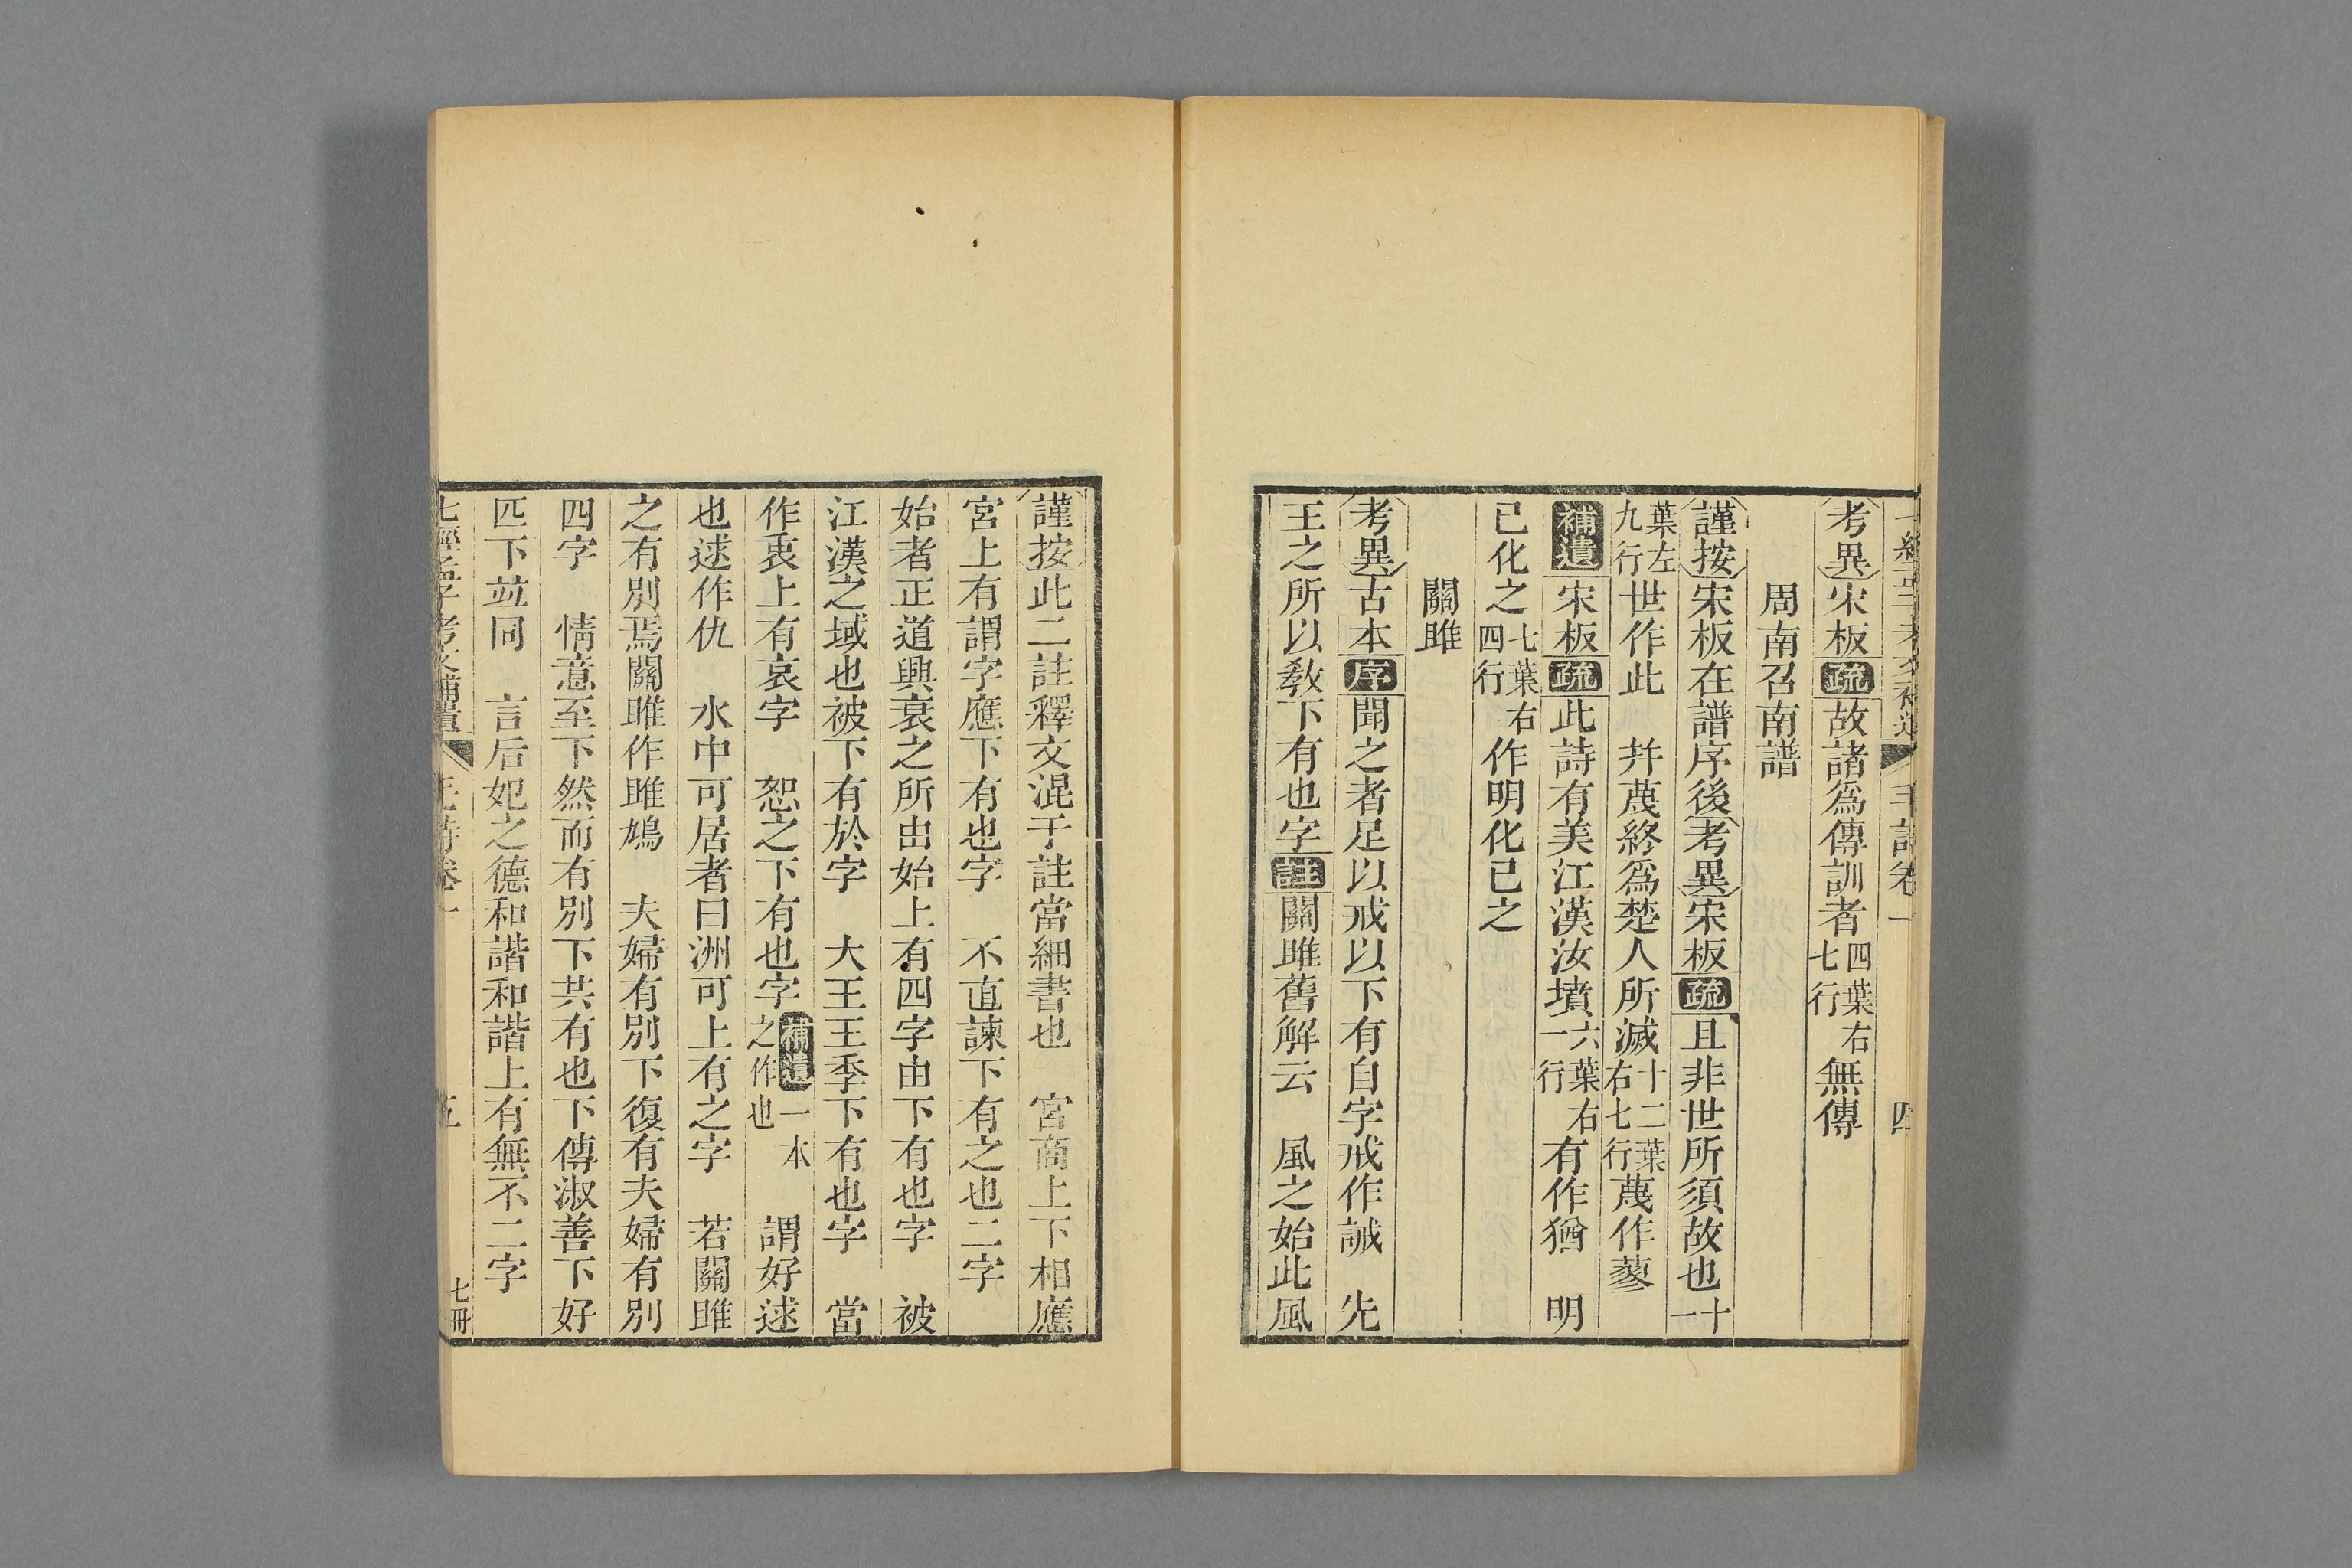 考異宋板疏故諸爲傳訓者四葉右七行無傳
周南召南譜
謹按宋板在譜序後考異宋板疏且非世所須故也十一
葉左九行世作此　幷蔑終爲楚人所滅十二葉右七行蔑作蓼
補遺宋板疏此詩有美江漢汝墳六葉右一行有作猶　明
已化之七葉右四行作明化已之
關雎
考異古本序聞之者足以戒以下有自字戒作誡　先
王之所以教下有也字註關雎舊解云　風之始此風
謹按此二註釋文混于註當細書也　宮商上下相應
宮上有謂字應下有也字　不直諫下有之也二字
始者正道興衰之所由始上有四字由下有也字　被
江漢之域也被下有於字　大王王季下有也字　當
作衷上有哀字　恕之下有也字補遺一本之作也　謂好逑
也逑作仇　水中可居者曰洲可上有之字　若關雎
之有別焉關雎作雎鳩　夫婦有別下復有夫婦有別
四字　情意至下然而有別下共有也下傳淑善下好
匹下竝同　言后妃之德和諧和諧上有無不二字
七冊